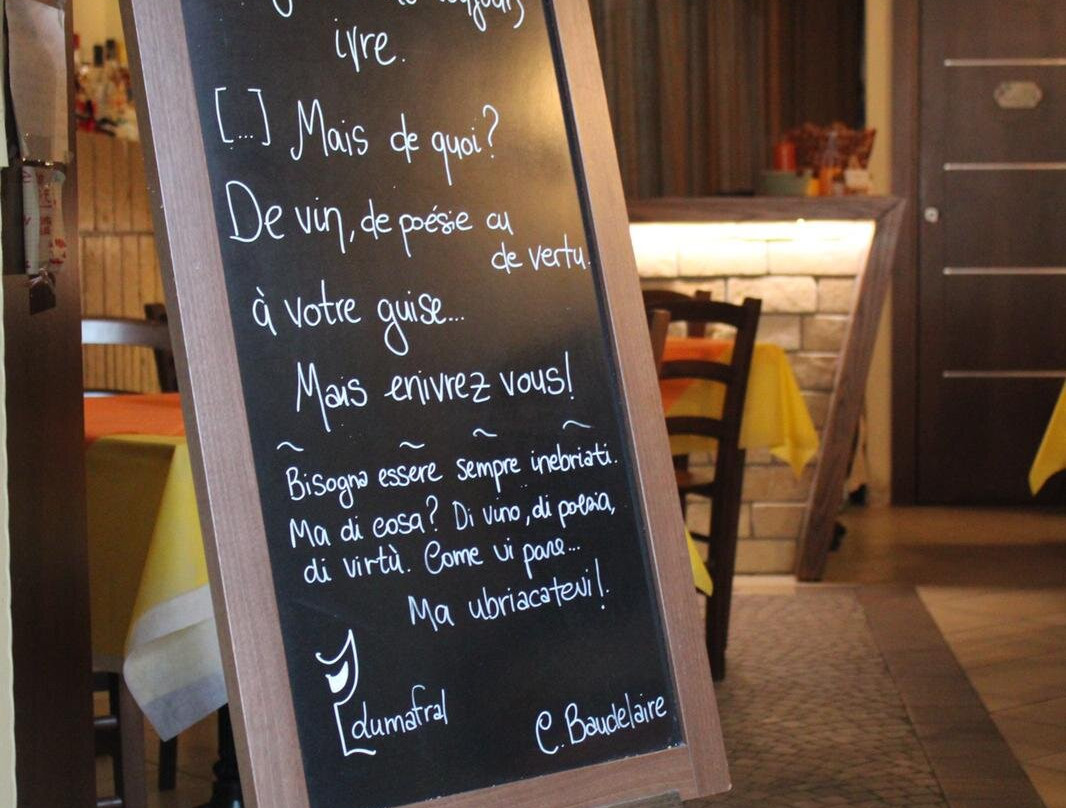 toujours
ivre.
[...] Mais de quoi?
De vin, de poésie ou
de vertu.
à votre guise...
Mais enivrez vous!
Bisogna essere sempre inebriati.
Ma di cosa? Di vino, di poesia,
di virtù. Come vi pare...
Ma ubriacatevi!
dumafral
C. Baudelaire